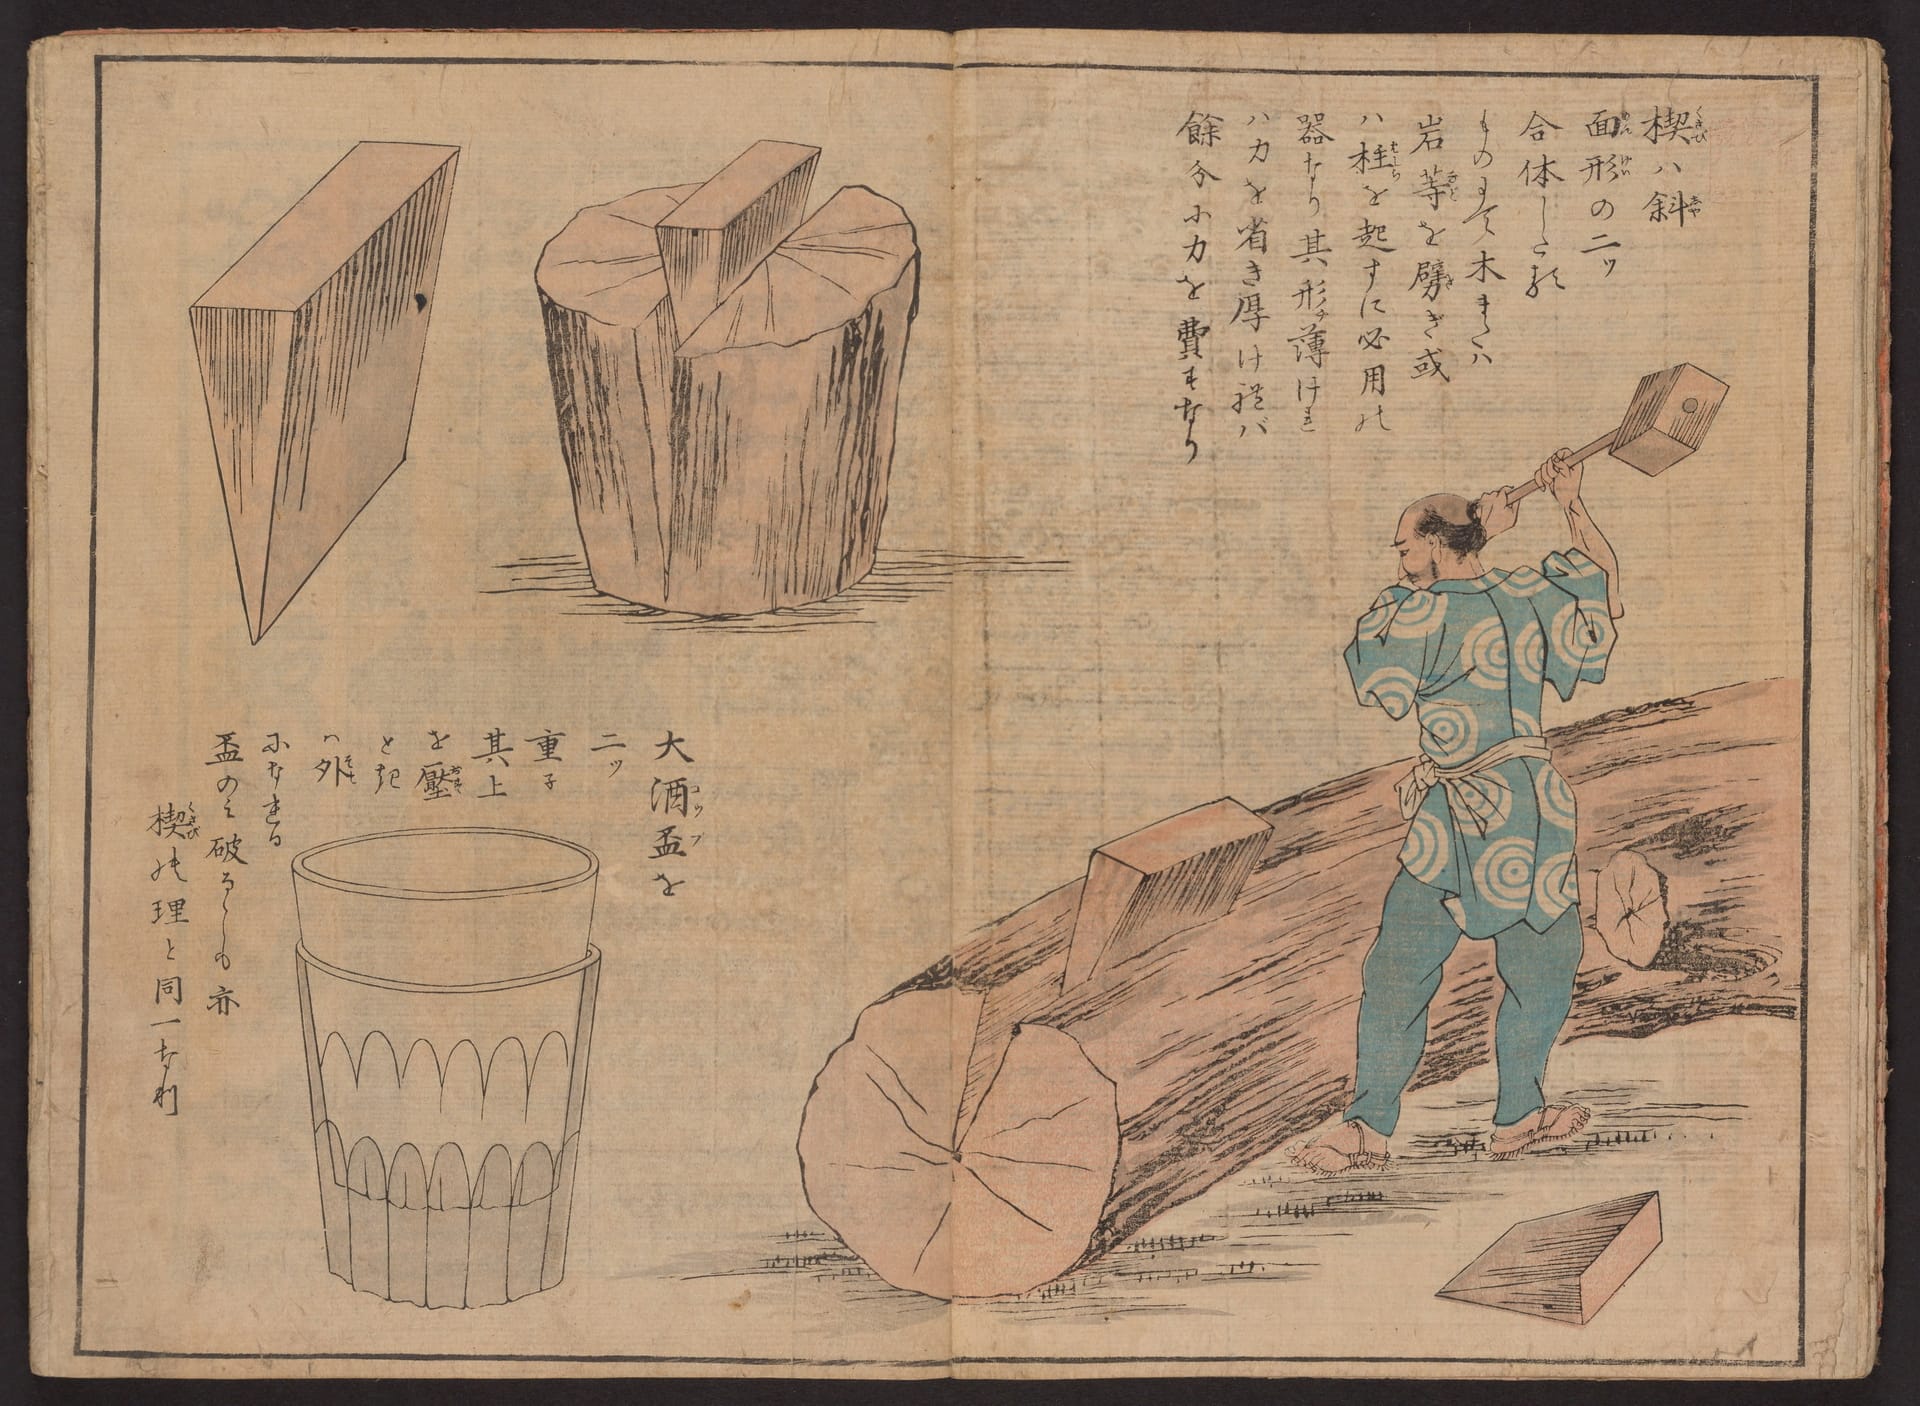 楔ハ斜
面形の二ッ
合体したる
ものにて木または
岩等を劈き或
ハ柱を起すに必用の
器なり其形チ薄けれ
ハ力を省き厚けれバ
餘分に力を費すなり
大酒盃を
二ッ
重子
其上
を壓
とき
ハ外
になれる
盃のミ破るゝも亦
楔の理と同一なり